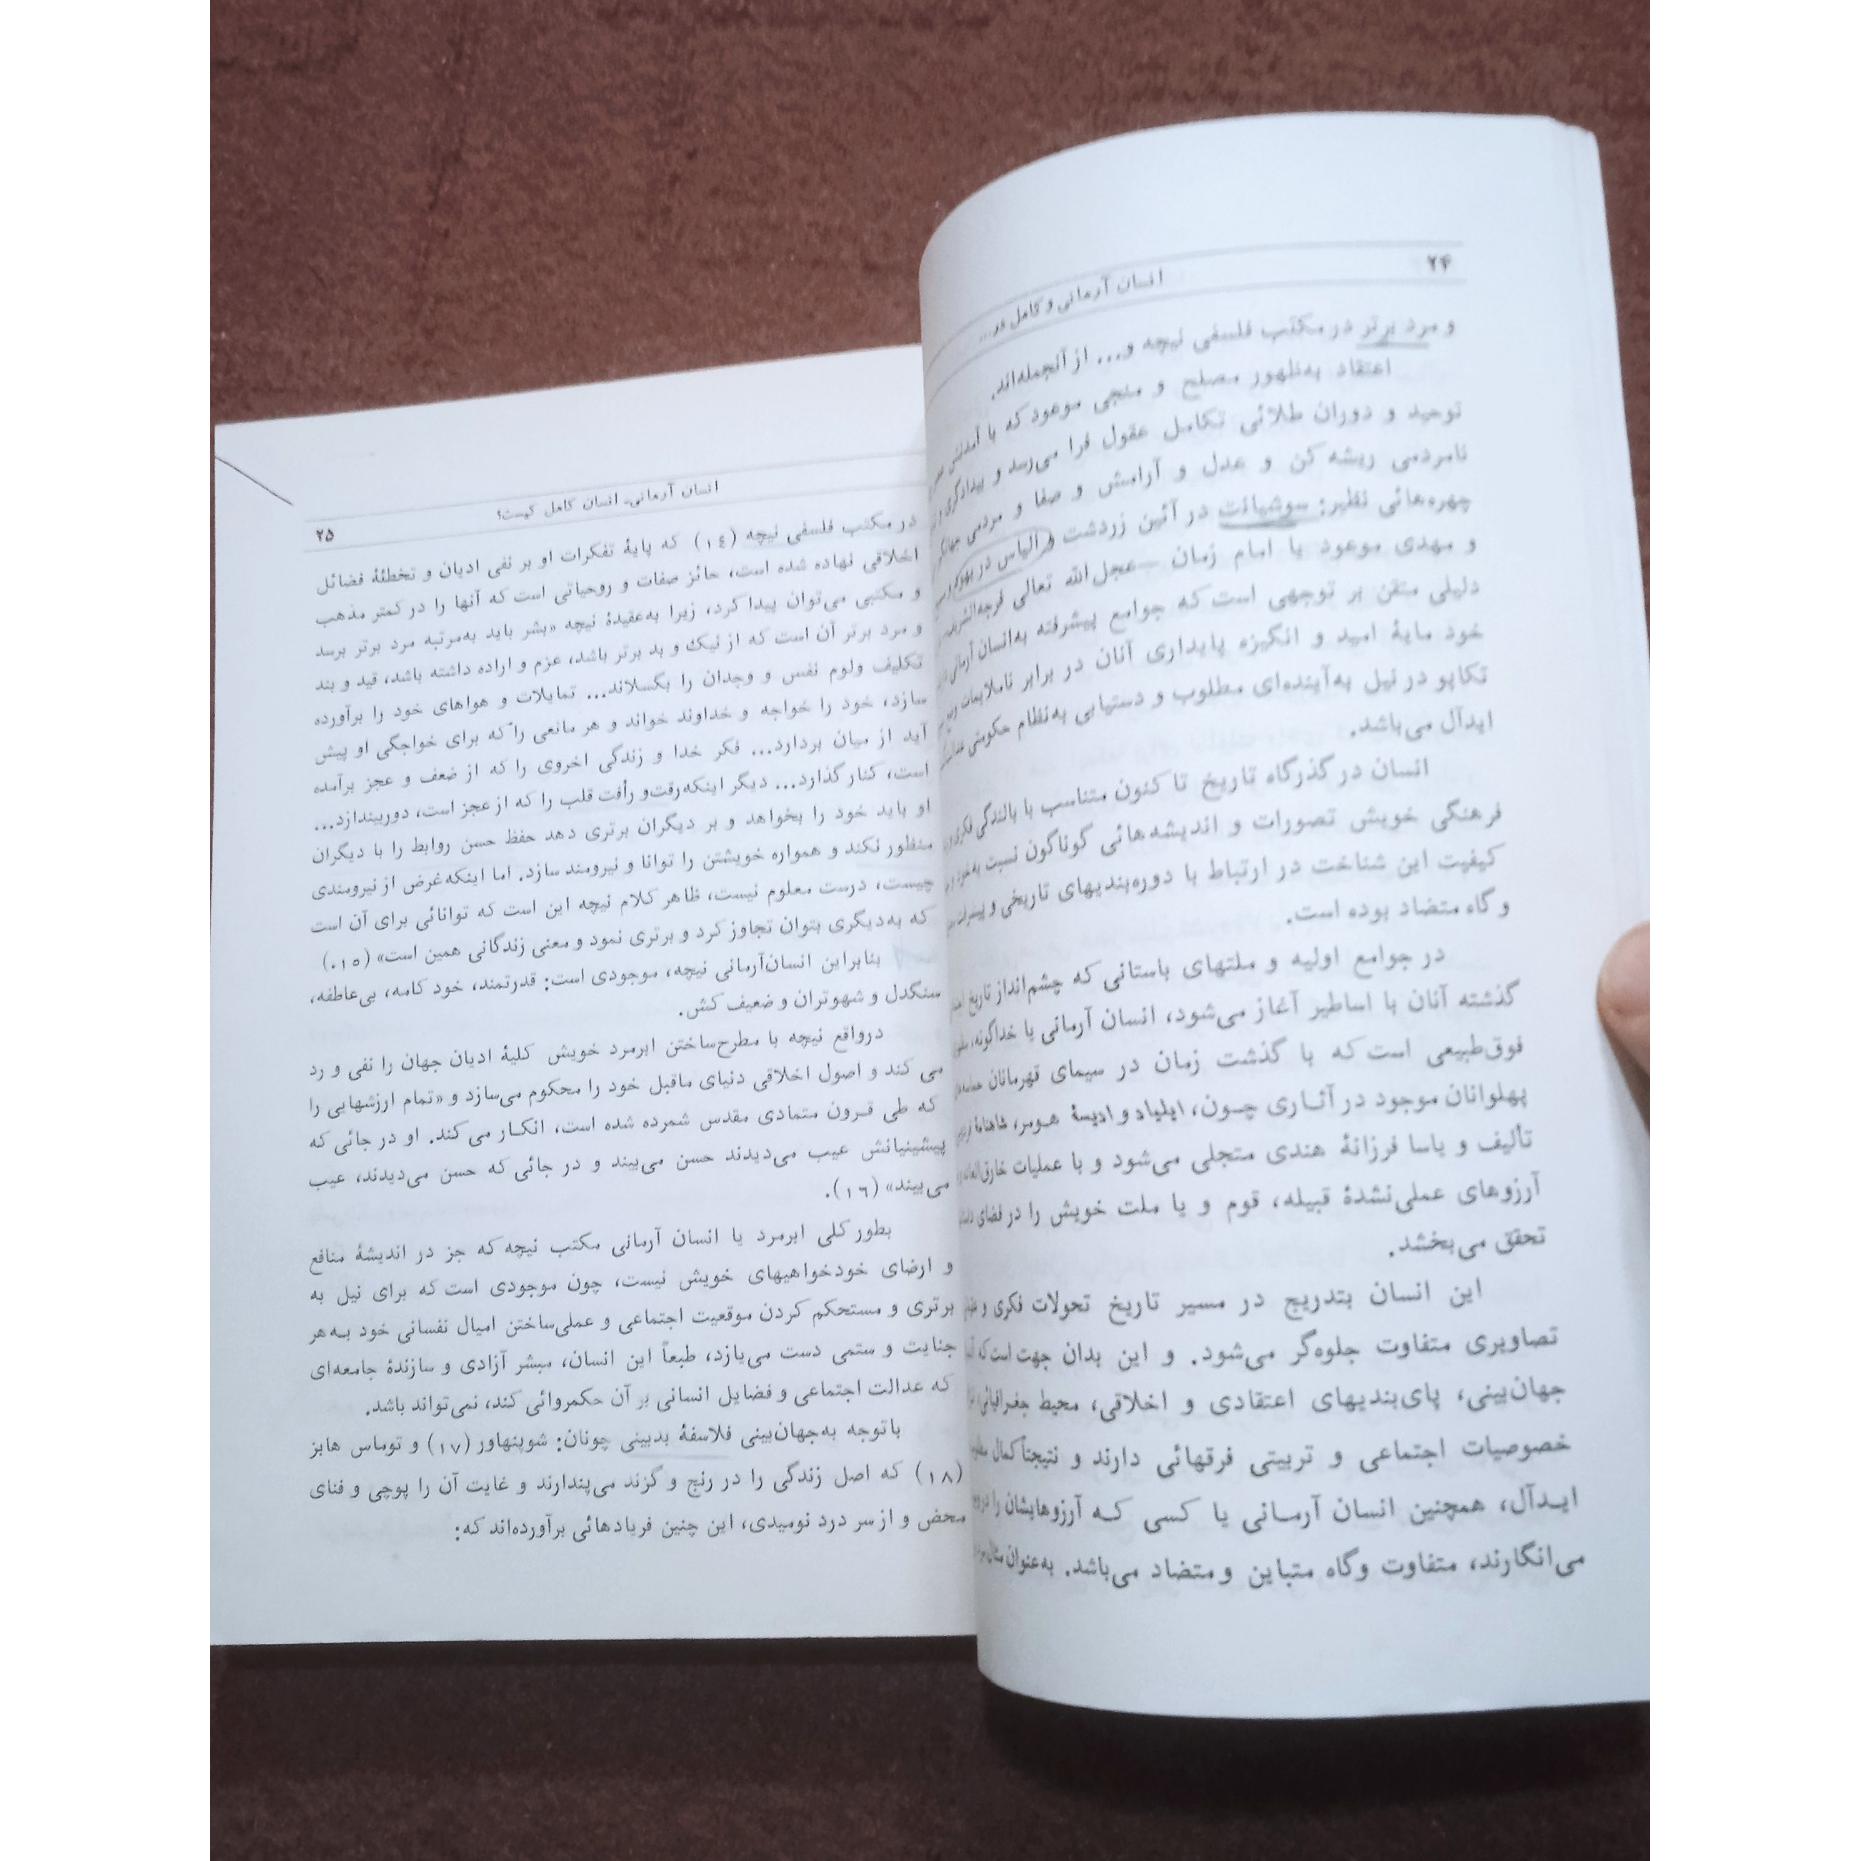 ۲۴
انسان آرمانی و کامل در...
و مرد برتر در مکتب فلسفی نیچه و... از آنجمله‌اند.
اعتقاد به‌ظهور مصلح و منجی موعود که با آمدنش
توحید و دوران طلائی تکامل عقول فرا می‌رسد و بیدادگری و
نامردمی ریشه‌کن و عدل و آرامش و صفا و مردمی
چهره‌هائی نظیر: سوشیانت در آئین زردشت و الیاس در یهود و
و مهدی موعود یا امام زمان –عجل‌الله تعالی فرجه‌الشریف
دلیلی متقن بر توجهی است که جوامع پیشرفته به‌انسان آرمانی
خود مایهٔ امید و انگیزه پایداری آنان در برابر ناملایمات
تکاپو در نیل به‌آینده‌ای مطلوب و دستیابی به‌نظام حکومتی
ایدآل می‌باشد.
انسان در گذرگاه تاریخ تا کنون متناسب با بالندگی فکری و
فرهنگی خویش تصورات و اندیشه‌هائی گوناگون نسبت به‌خود و
کیفیت این شناخت در ارتباط با دوره‌بندیهای تاریخی و
و گاه متضاد بوده است.
در جوامع اولیه و ملتهای باستانی که چشم‌انداز تاریخ
گذشته آنان با اساطیر آغاز می‌شود، انسان آرمانی یا خداگونه،
فوق‌طبیعی است که با گذشت زمان در سیمای قهرمانان
پهلوانان موجود در آثاری چون، ایلیاد و ادیسهٔ هومر، شاهنامهٔ
تألیف و یاسا فرزانهٔ هندی متجلی می‌شود و با عملیات خارق‌العاده
آرزوهای عملی‌نشدهٔ قبیله، قوم و یا ملت خویش را در فضای
تحقق می‌بخشد.
این انسان بتدریج در مسیر تاریخ تحولات فکری و
تصاویری متفاوت جلوه‌گر می‌شود. و این بدان جهت است که
جهان‌بینی، پای‌بندیهای اعتقادی و اخلاقی، محیط جغرافیائی،
خصوصیات اجتماعی و تربیتی فرقهائی دارند و نتیجتاً کمال
ایدآل، همچنین انسان آرمانی یا کسی که آرزوهایشان را در
می‌انگارند، متفاوت وگاه متباین و متضاد می‌باشد. به‌عنوان مثال
انسان آرمانی، انسان کامل کیست؟
۲۵
در مکتب فلسفی نیچه (۱۴) که پایهٔ تفکرات او بر نفی ادیان و تخطئهٔ فضائل
اخلاقی نهاده شده است، حائز صفات و روحیاتی است که آنها را در کمتر مذهب
و مکتبی می‌توان پیدا کرد، زیرا به‌عقیدهٔ نیچه «بشر باید به‌مرتبه مرد برتر برسد
و مرد برتر آن است که از نیک و بد برتر باشد، عزم و اراده داشته باشد، قید و بند
تکلیف ولوم نفس و وجدان را بگسلاند... تمایلات و هواهای خود را برآورده
سازد، خود را خواجه و خداوند خواند و هر مانعی را که برای خواجگی او پیش
آید از میان بردارد... فکر خدا و زندگی اخروی را که از ضعف و عجز برآمده
است، کنار گذارد... دیگر اینکه رقت و رأفت قلب را که از عجز است، دور بیندازد...
او باید خود را بخواهد و بر دیگران برتری دهد حفظ حسن روابط را با دیگران
منظور نکند و همواره خویشتن را توانا و نیرومند سازد. اما اینکه غرض از نیرومندی
چیست، درست معلوم نیست، ظاهر کلام نیچه این است که توانائی برای آن است
که به‌دیگری بتوان تجاوز کرد و برتری نمود و معنی زندگانی همین است» (۱۵.)
بنابراین انسان‌آرمانی نیچه، موجودی است: قدرتمند، خود کامه، بی‌عاطفه،
سنگدل و شهوتران و ضعیف کش.
درواقع نیچه با مطرح‌ساختن ابرمرد خویش کلیهٔ ادیان جهان را نفی و رد
می کند و اصول اخلاقی دنیای ماقبل خود را محکوم می‌سازد و «تمام ارزشهایی را
که طی قرون متمادی مقدس شمرده شده است، انکار می کند. او در جائی که
پیشینیانش عیب می‌دیدند حسن می‌بیند و در جائی که حسن می‌دیدند، عیب
می‌بیند» (۱۶).
بطور کلی ابرمرد یا انسان آرمانی مکتب نیچه که جز در اندیشهٔ منافع
و ارضای خودخواهیهای خویش نیست، چون موجودی است که برای نیل به
برتری و مستحکم کردن موقعیت اجتماعی و عملی‌ساختن امیال نفسانی خود به‌هر
جنایت و ستمی دست می‌یازد، طبعاً این انسان، مبشر آزادی و سازندهٔ جامعه‌ای
که عدالت اجتماعی و فضایل انسانی بر آن حکمروائی کند، نمی‌تواند باشد.
باتوجه به‌جهان‌بینی فلاسفهٔ بدبینی چونان: شوپنهاور (۱۷) و توماس هابز
(۱۸) که اصل زندگی را در رنج و گزند می‌پندارند و غایت آن را پوچی و فنای
محض و از سر درد نومیدی، این چنین فریادهائی برآورده‌اند که: